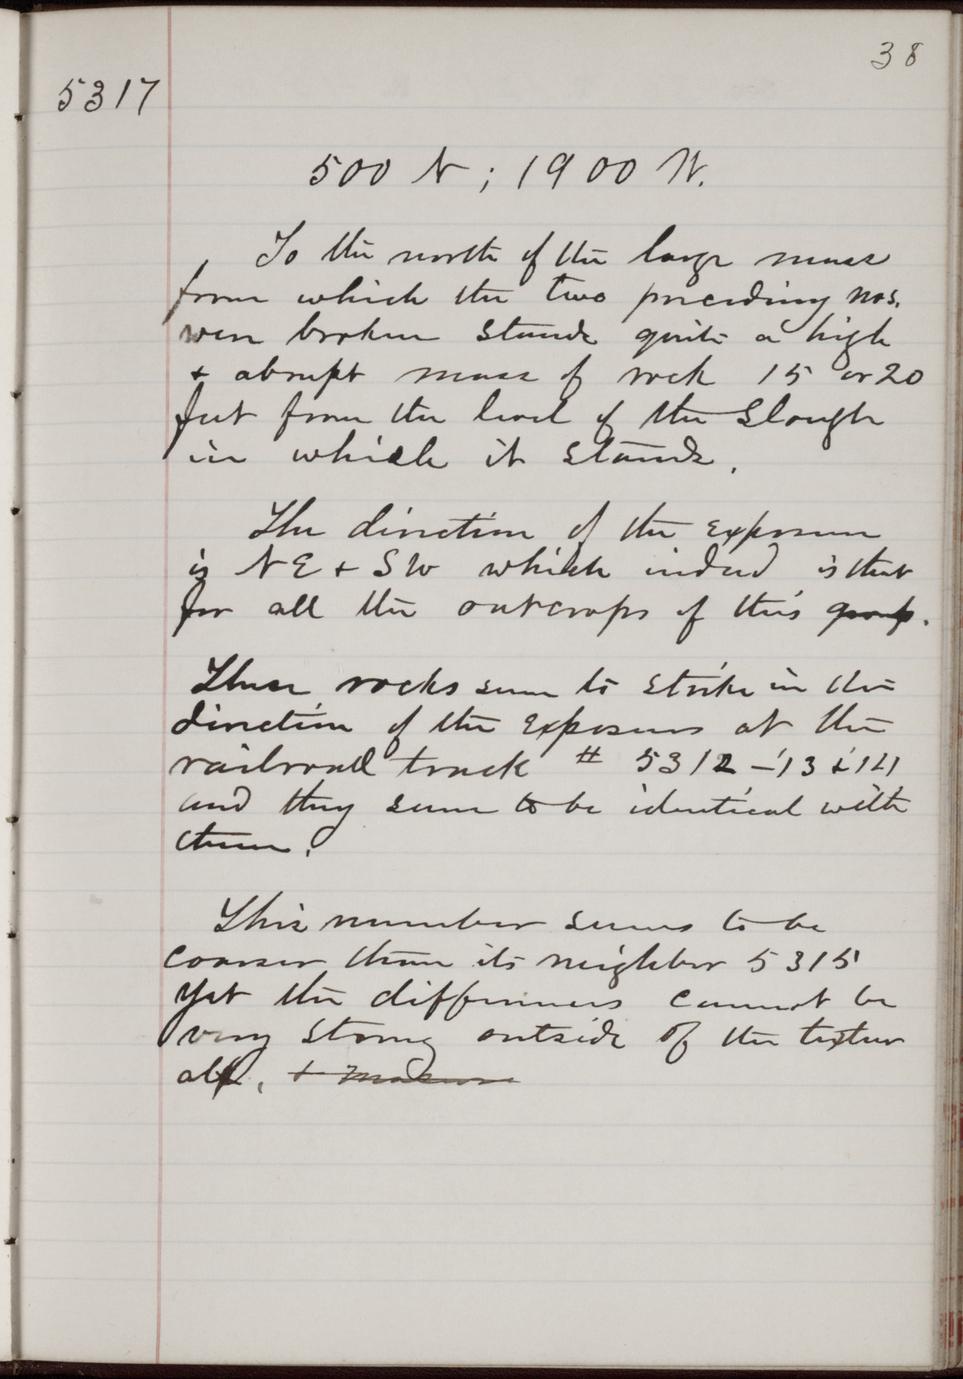 38
5317
500 N; 1900 W.
To the north of the large mass
from which the two preceding nos.
were broken stands quite a high
+ abrupt mass of rock 15 or 20
feet from the level of the Slough
in which it stands.
The direction of the exposure
is NE + SW which indeed is that
for all the outcrops of this group.
These rocks seem to strike in the
direction of the exposures at the
railroad track # 5312 - '13 & '14
and they seem to be identical with
them.
This number seems to be
coarser than its neighbor 5315
yet the differences cannot be
very strong outside of the textur